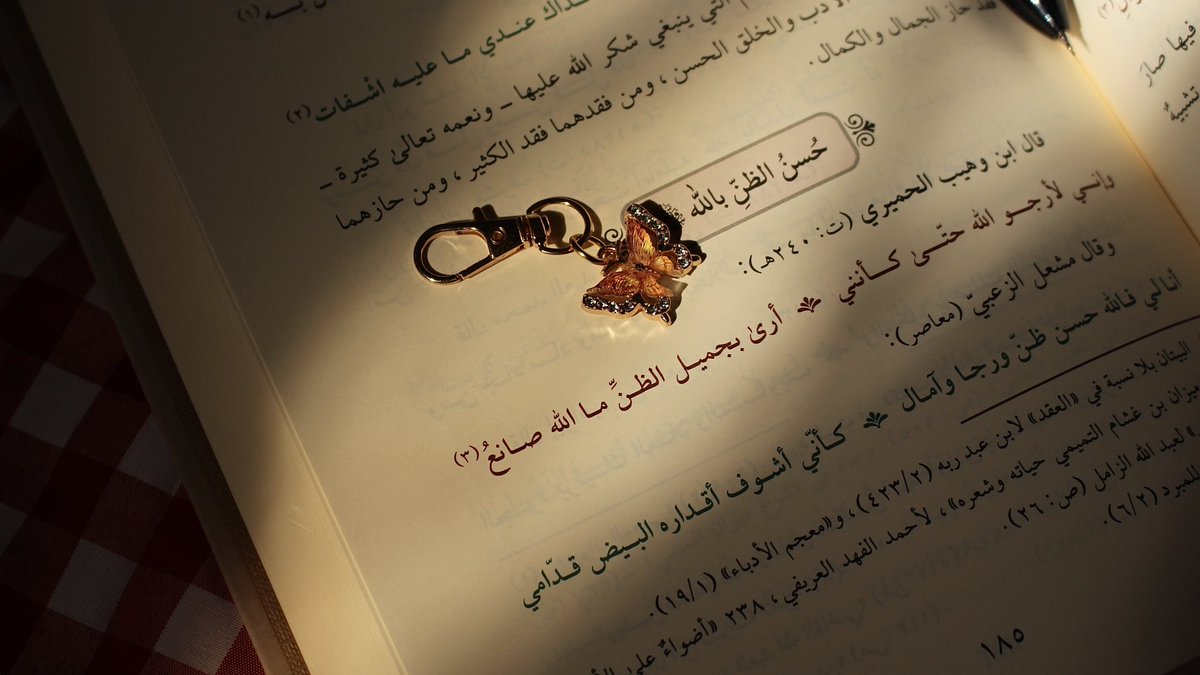 ـداك عندي ما عليه اشْفات (٢)
التي ينبغي شكر الله عليها ـ ونعمه تعالىٰ كثيرة ـ
الأدب والخلق الحسن، ومن فقدهما فقد الكثير، ومن حازهما
فقد حاز الجمال والكمال.
حُسنُ الظنِّ بالله
قال ابن وهيب الحميري (ت: ٢٤٠هـ):
وإنـي لأرجـو الله حتّـىٰ كـأنني أرىٰ بجميل الظـنِّ مـا الله صـانعُ (٣)
وقال مشعل الزعبيّ (معاصر):
أنـا لي فـالله حسن ظنّ ورجـا وآمـال كـأنّي أشـوف أقـداره البـيض قـدّامي
البيتان بلا نسبة في «العقد» لابن عبد ربه (٤٢٣/٢)، و«معجم الأدباء» (١٩/١).
ميزان بن غشام التميمي حياته وشعره»، لأحمد الفهد العريفي، ٢٣٨ «أضواءٌ على
لعبد الله الزامل (ص: ٢٦).
للمبرد (٦/٢).
١٨٥
فيها صارَ
تشبيهُ